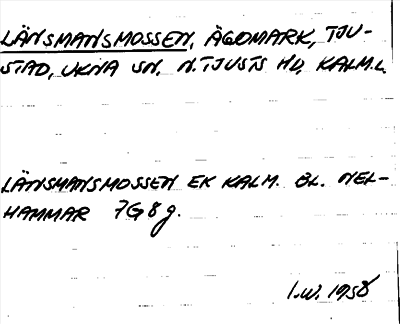 LÄNSMANSMOSSEN, ÄGOMARK, TJU-
STAD, UKNA SN, N. TJUSTS HD, KALM.L.
LÄNSMANSMOSSEN EK KALM. BL. NEL-
HAMMAR 7G8g.
I.W. 1958